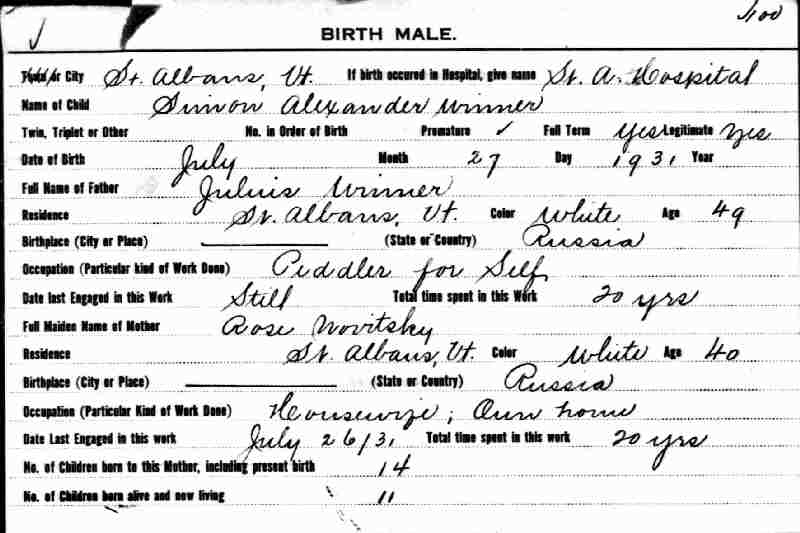 BIRTH MALE.
or City St. Albans, Vt. If birth occured in Hospital, give name St. A. Hospital
Name of Child Simon Alexander Winner
Twin, Triplet or Other No. in Order of Birth Premature ✓ Full Term Yes Legitimate Yes
Date of Birth July Month 27 Day 1931 Year
Full Name of Father Julius Winner
Residence St. Albans, Vt. Color White Age 49
Birthplace (City or Place) (State or Country) Russia
Occupation (Particular kind of Work Done) Peddler for Self
Date last Engaged in this Work Still Total time spent in this Work 20 yrs
Full Maiden Name of Mother Rose Novitsky
Residence St. Albans, Vt. Color White Age 40
Birthplace (City or Place) (State or Country) Russia
Occupation (Particular Kind of Work Done) Housewife; Own home
Date Last Engaged in this work July 26/31 Total time spent in this work 20 yrs
No. of Children born to this Mother, including present birth 14
No. of Children born alive and now living 11